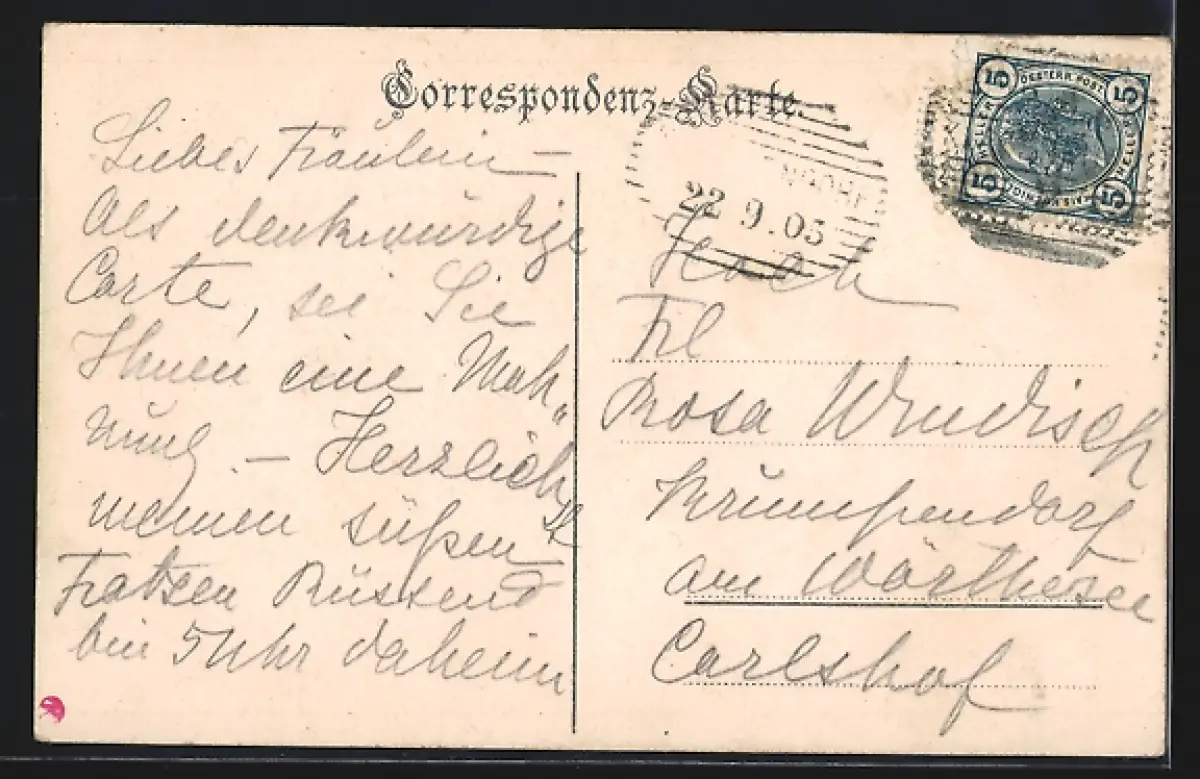 Correspondenz-Karte
Liebes Fräulein —
Als denkwürdige
Carte, sei Sie
Ihnen eine Mah„
nung. — Herzlichst
meinen süßen
Fratzen Küssend
bin 5 Uhr daheim
22 9.05
5 OESTERR. POST. 5
HELLER HELLER
5 5
Frl
Rosa Windisch
Krumpendorf
am Wörthesee
Carlshof